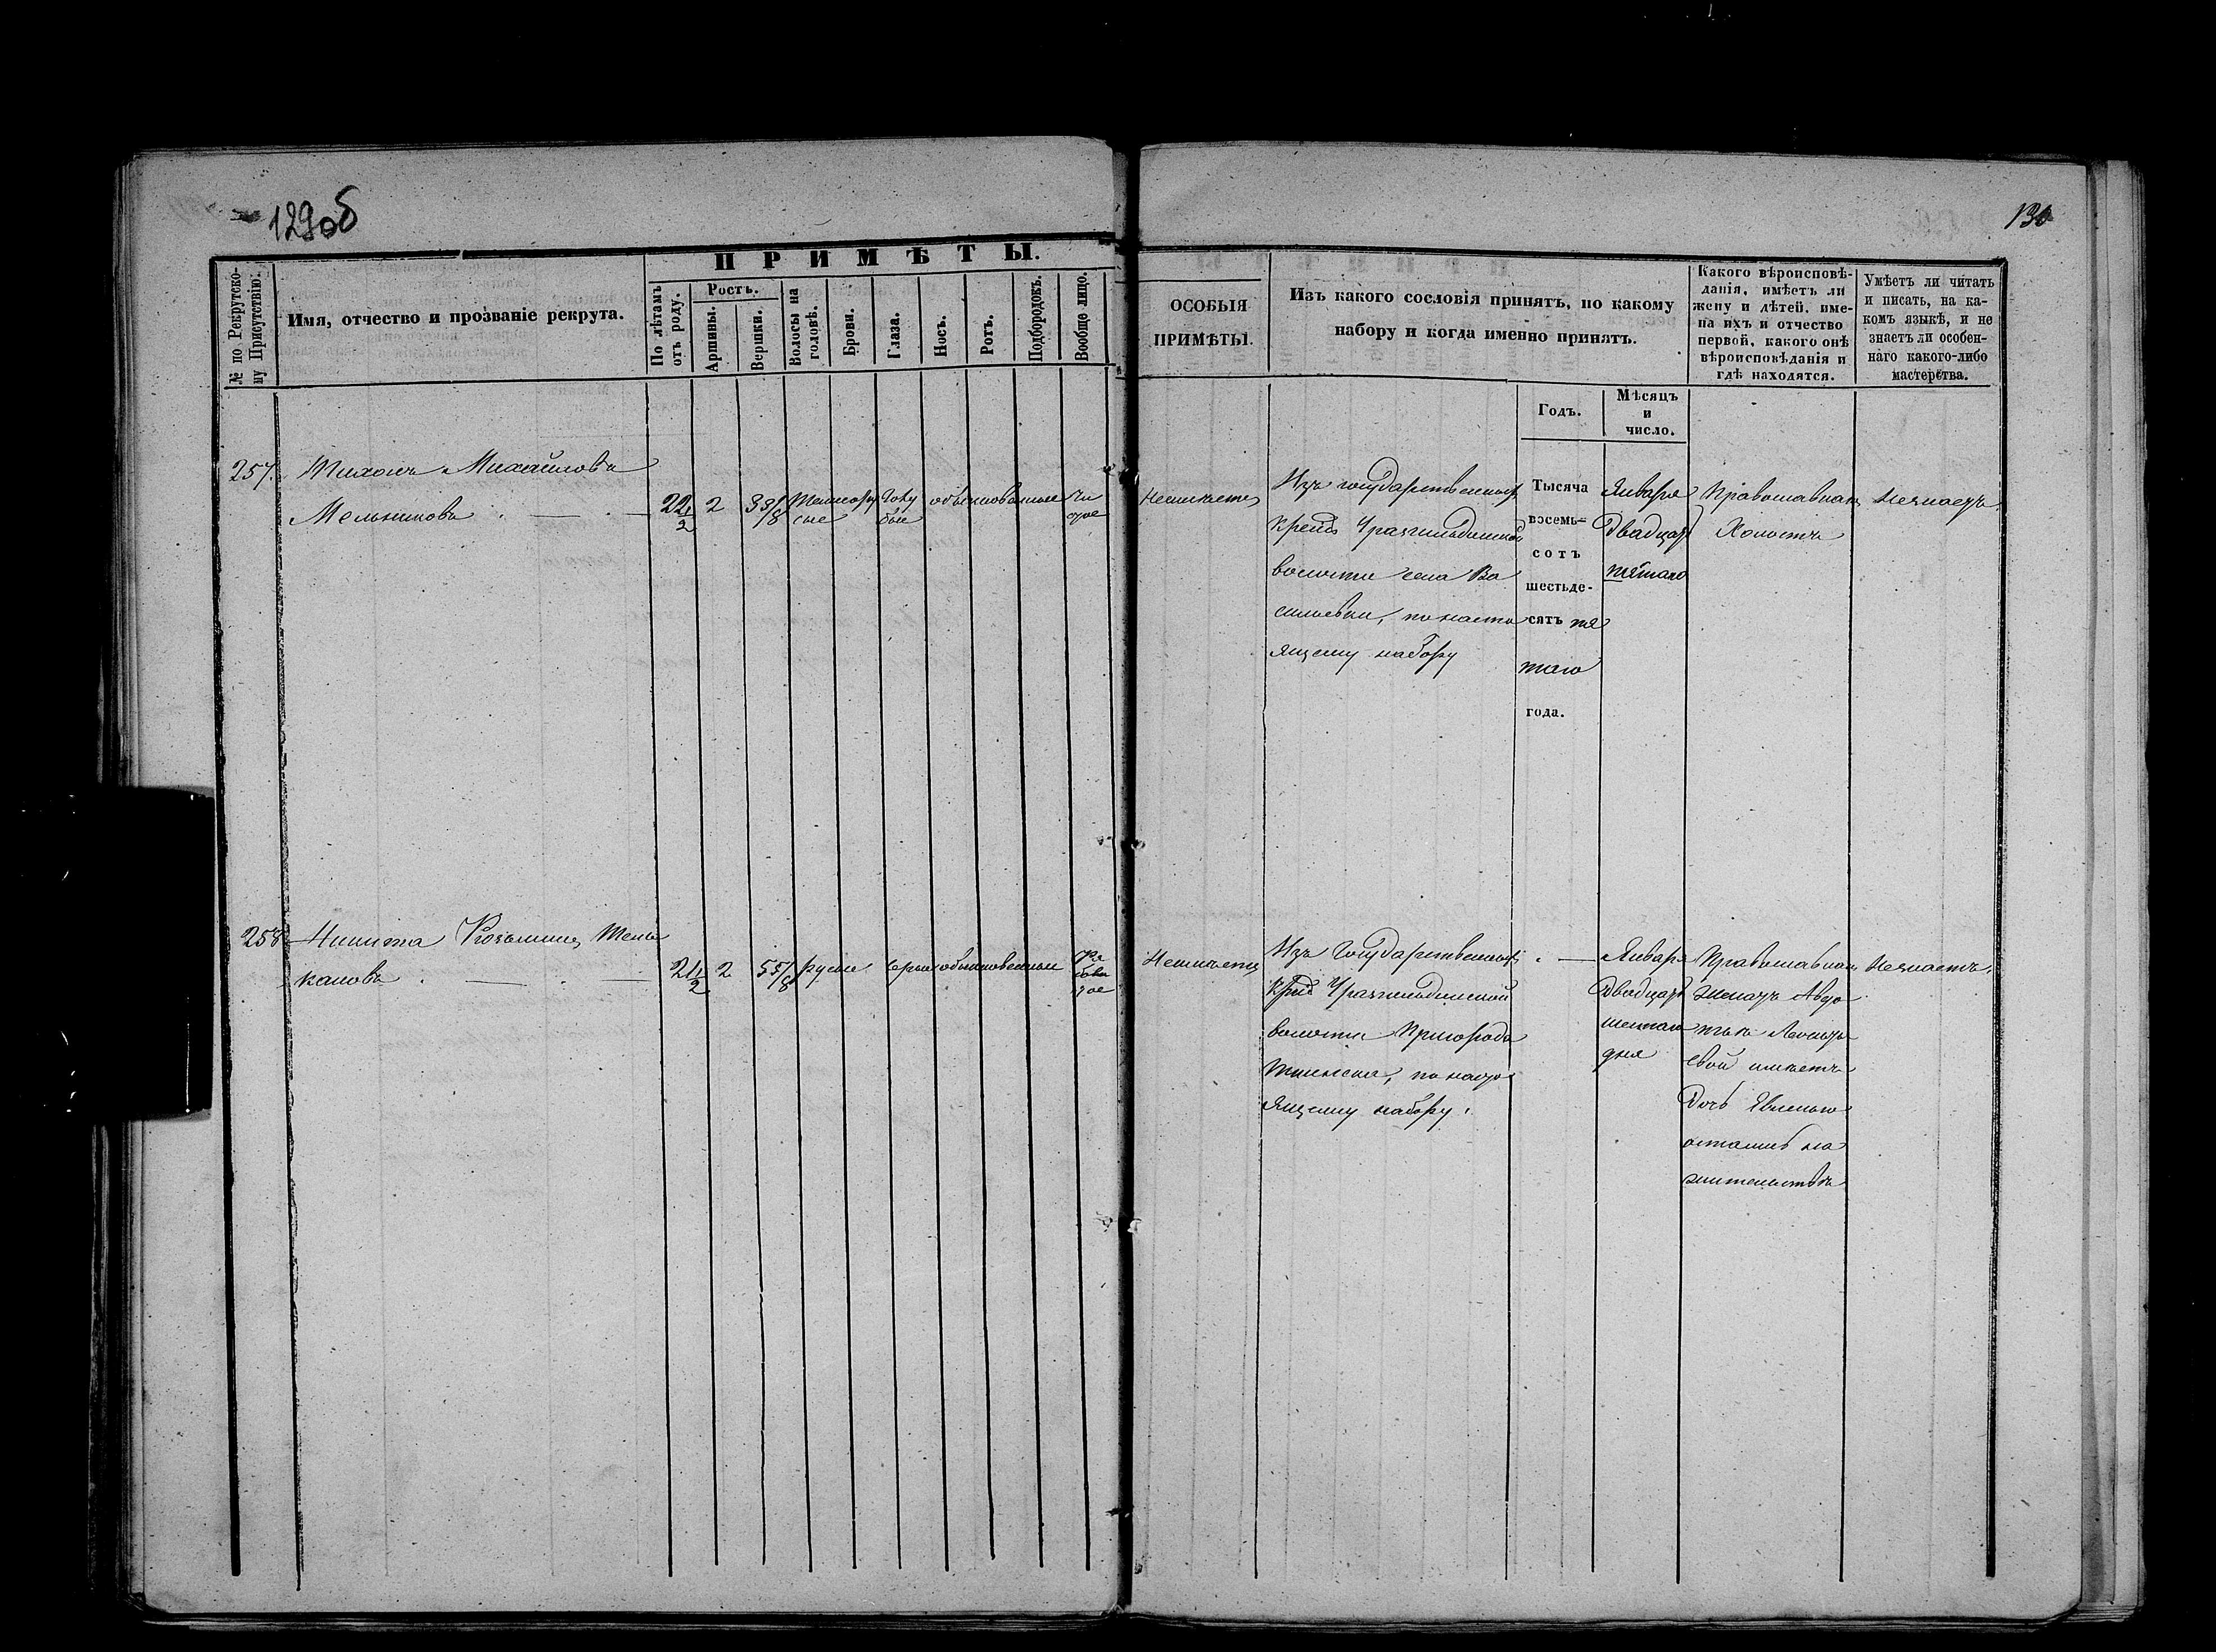 129об
130
ПРИМѢТЫ.
№ по Рекрутско-
му Присутствію.
Имя, отчество и прозваніе рекрута.
По лѣтамъ
отъ роду.
Ростъ.
Аршины.
Вершки.
Волосы на
головѣ.
Брови.
Глаза.
Носъ.
Ротъ.
Подбородокъ.
Вообще лицо.
ОСОБЫЯ
ПРИМѢТЫ.
Изъ какого сословія принятъ, по какому
набору и когда именно принятъ.
Годъ.
Мѣсяцъ
и
число.
Какого вѣроисповѣ-
данія, имѣетъ ли
жену и дѣтей, име-
на ихъ и отчество
первой, какого онѣ
вѣроисповѣданія и
гдѣ находятся.
Умѣетъ ли читать
и писать, на ка-
комъ языкѣ, и не
знаетъ ли особен-
наго какого-либо
мастерства.
257. Тихонъ Михайловъ
Мельниковъ
22 1/2
2
3 3/8
Темнору
сые
Голу
бые
обыкновенные
Чи
стое
Неимѣетъ
Изъ государственныхъ
Кресть
волости села Ва
сильевки, по насто
ящему набору
Тысяча
восемь-
сотъ
шестьде-
сятъ пя
таго
года.
Января
Двадцать
пятаго
Православнаго
Холостъ
Незнаетъ
258 Никита Козьминъ Мень
каковъ
21 1/2
2
5 5/8
русые
серые
обыкновенные
Неимѣетъ
Изъ Государственныхъ
Кресть
волости Пригорода
Тіинска, по насто
ящему набору.
Января
Двадцать
шестаго
дня
Православнаго
женатъ Авдо
тьѣ Леонтье
вой имѣетъ
Дочь
оставилъ на
жительствѣ
Незнаетъ.